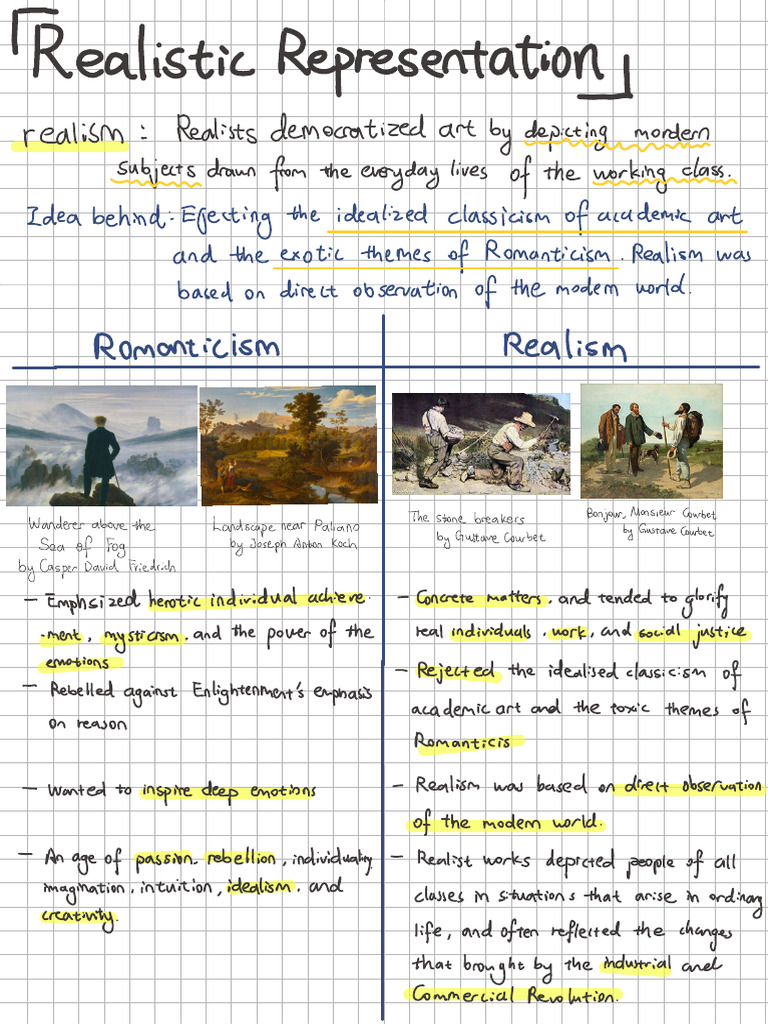 「Realistic Representation」
realism : Realists democratized art by depicting mordern
subjects drawn from the everyday lives of the working class.
Idea behind: Ejecting the idealized classicism of academic art
and the exotic themes of Romanticism. Realism was
based on direct observation of the modern world.
Romanticism
Wanderer above the
Sea of Fog
by Casper David Friedrich
Landscape near Paliano
by Joseph Anton Koch
- Emphsized herotic individual achieve
-ment, mysticism, and the power of the
emotions
- Rebelled against Enlightenment's emphasis
on reason
- Wanted to inspire deep emotions
- An age of passion, rebellion, individuality,
imagination, intuition, idealism, and
creativity.
Realism
The stone breakers
by Gustave Courbet
Bonjour, Monsieur Courbet
by Gustave Courbet
- Concrete matters, and tended to glorify
real individuals, work, and social justice
- Rejected the idealised classicism of
academic art and the toxic themes of
Romanticis
- Realism was based on direct observation
of the modern world.
- Realist works depicted people of all
classes in situations that arise in ordinary
life, and often reflected the changes
that brought by the industrial and
Commercial Revolution.